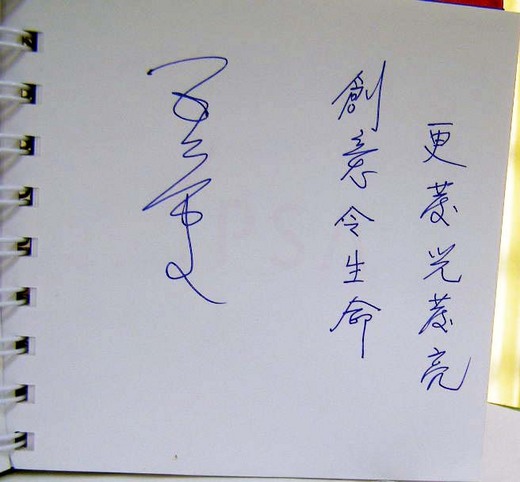 創意令生命
更發光發亮